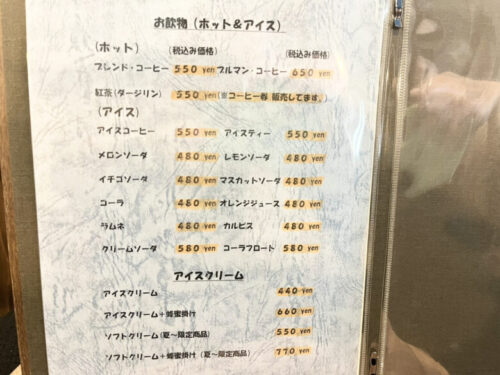 お飲物（ホット＆アイス）
（ホット） （税込み価格） （税込み価格）
ブレンド・コーヒー 550 yen ブルマン・コーヒー 650 yen
紅茶（ダージリン） 550 yen （※コーヒー券 販売してます。）
（アイス）
アイスコーヒー 550 yen アイスティー 550 yen
メロンソーダ 480 yen レモンソーダ 480 yen
イチゴソーダ 480 yen マスカットソーダ 480 yen
コーラ 480 yen オレンジジュース 480 yen
ラムネ 480 yen カルピス 480 yen
クリームソーダ 580 yen コーラフロート 580 yen
アイスクリーム
アイスクリーム 440 yen
アイスクリーム＋蜂蜜掛け 660 yen
ソフトクリーム（夏～限定商品） 550 yen
ソフトクリーム＋蜂蜜掛け（夏～限定商品） 770 yen